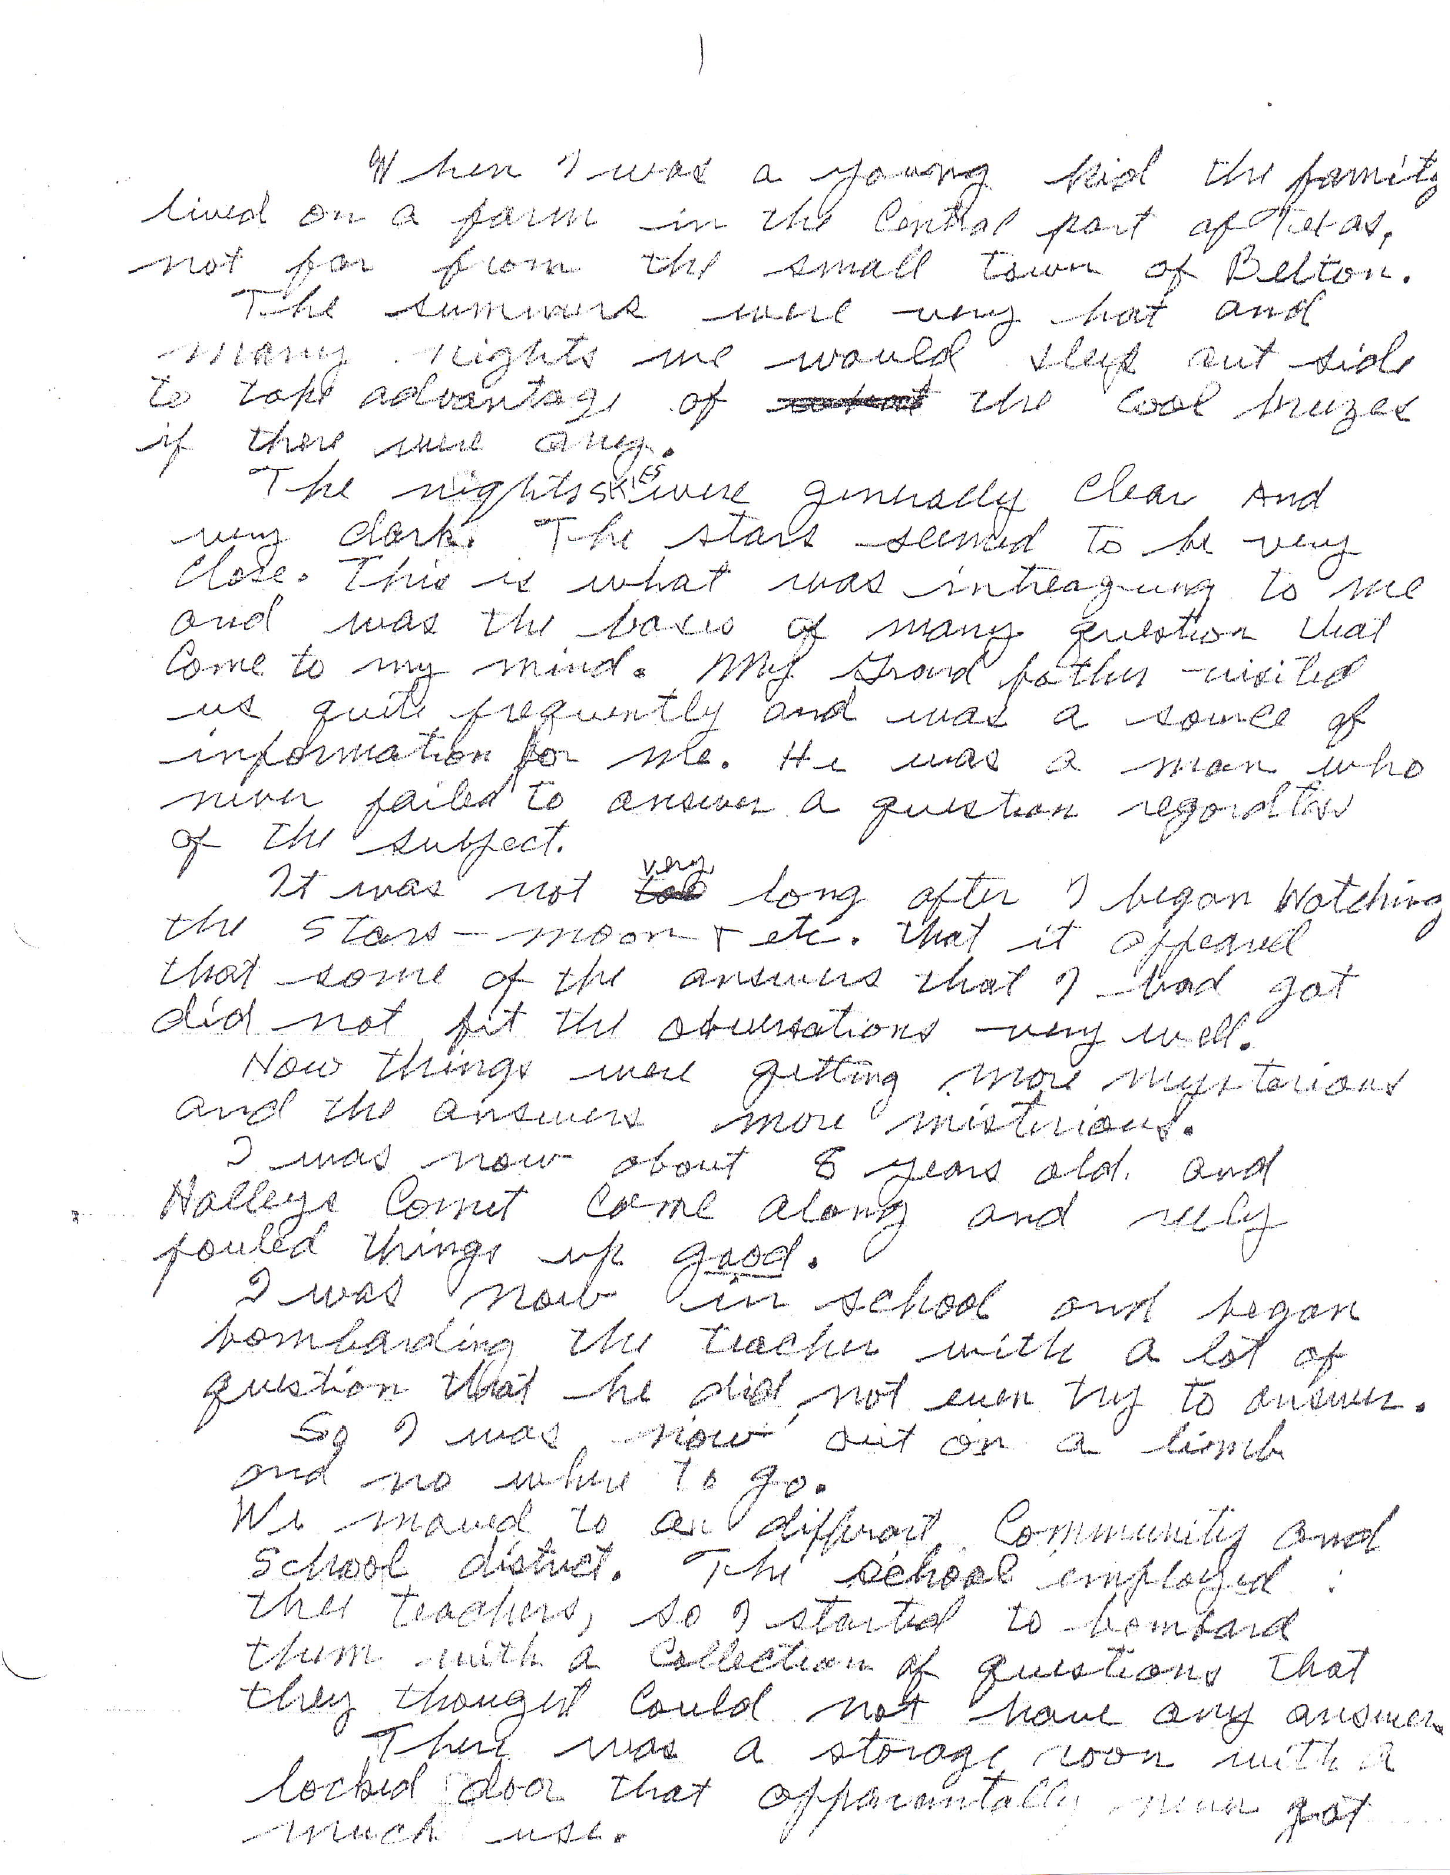 1
When I was a young kid the family
lived on a farm in the Central part of Texas,
not far from the small town of Belton.
The summers were very hot and
many nights we would sleep out side
to take advantage of the cool breezes
if there were any.
The nights skies were generally clear and
very dark. The stars seemed to be very
close. This is what was intreagung to me
and was the bases of many question that
come to my mind. My Grand father visited
us quite frequently and was a source of
information for me. He was a man who
never failed to answer a question regardless
of the subject.
It was not very long after I began Watching
the Stars - moon & etc. that it appeared
that some of the answers that I had got
did not fit the obversations very well.
Now things were getting more mysterious
and the answers more misterious.
I was now about 8 years old. and
Halleys Comet Come along and reely
fouled things up good.
I was now in school and began
bombarding the teacher with a lot of
question that he did not even try to answer.
So I was now out on a limb
and no where to go.
We moved to an different Community and
School district. The school employed
three teachers, so I started to bombard
them with a Collection of questions that
they thought could not have any answers
There was a storage room with a
locked door that apparentally never got
much use.